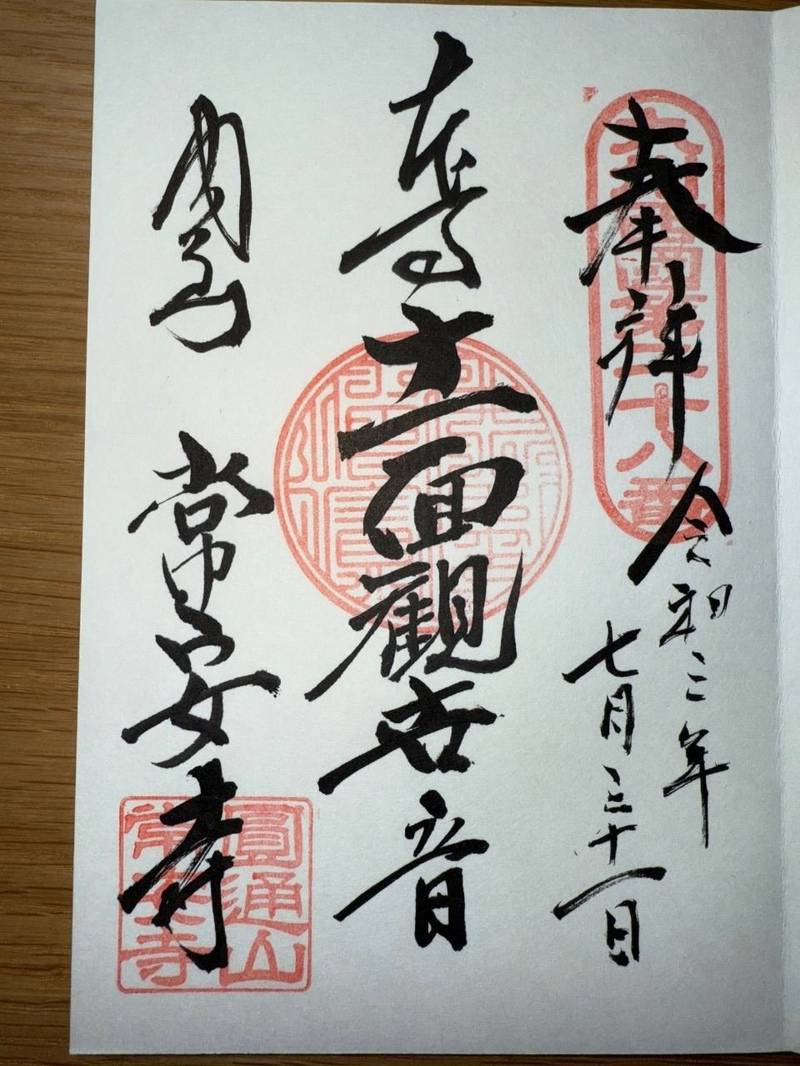 奉拝
令和三年
七月三十一日
二十八番
十一面観世音
常安寺
圓通山
常安寺